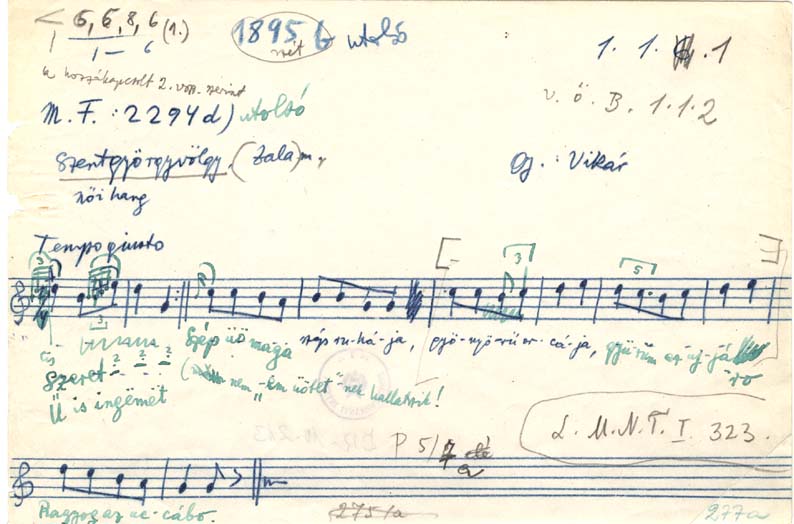 5, 5, 8, 6 (1.)
1 — 6
1895 b utolsó
1. 1. 1
a hozzákapcsolt 2. vsz. szerint
v. ö. B. 1.1.2
M. F. : 2294 d) utolsó
Szentgyörgyvölgy. (Zala) m.
Gy. : Vikár
női hang
Tempo giusto
3
3
5
Szép üő maga szép ru-há-ja, gyö-nyö-rü or-cá-ja, gyürüm az uj-já
ro
Szeret
( nem „-em üötet"-nek hallatszik!
Ü is ingëmët
L. M. N. T. I. 323.
P 5/
a
Ragyog az or-cábo.
275/a
277a